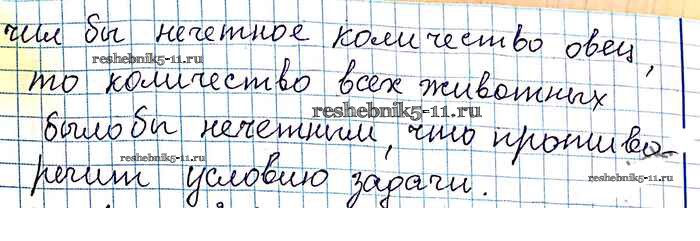 чил бы нечетное количество овец,
reshebnik5-11.ru
то количество всех животных
reshebnik5-11.ru
было бы нечетным, что противо-
reshebnik5-11.ru
речит условию задачи.
reshebnik5-11.ru